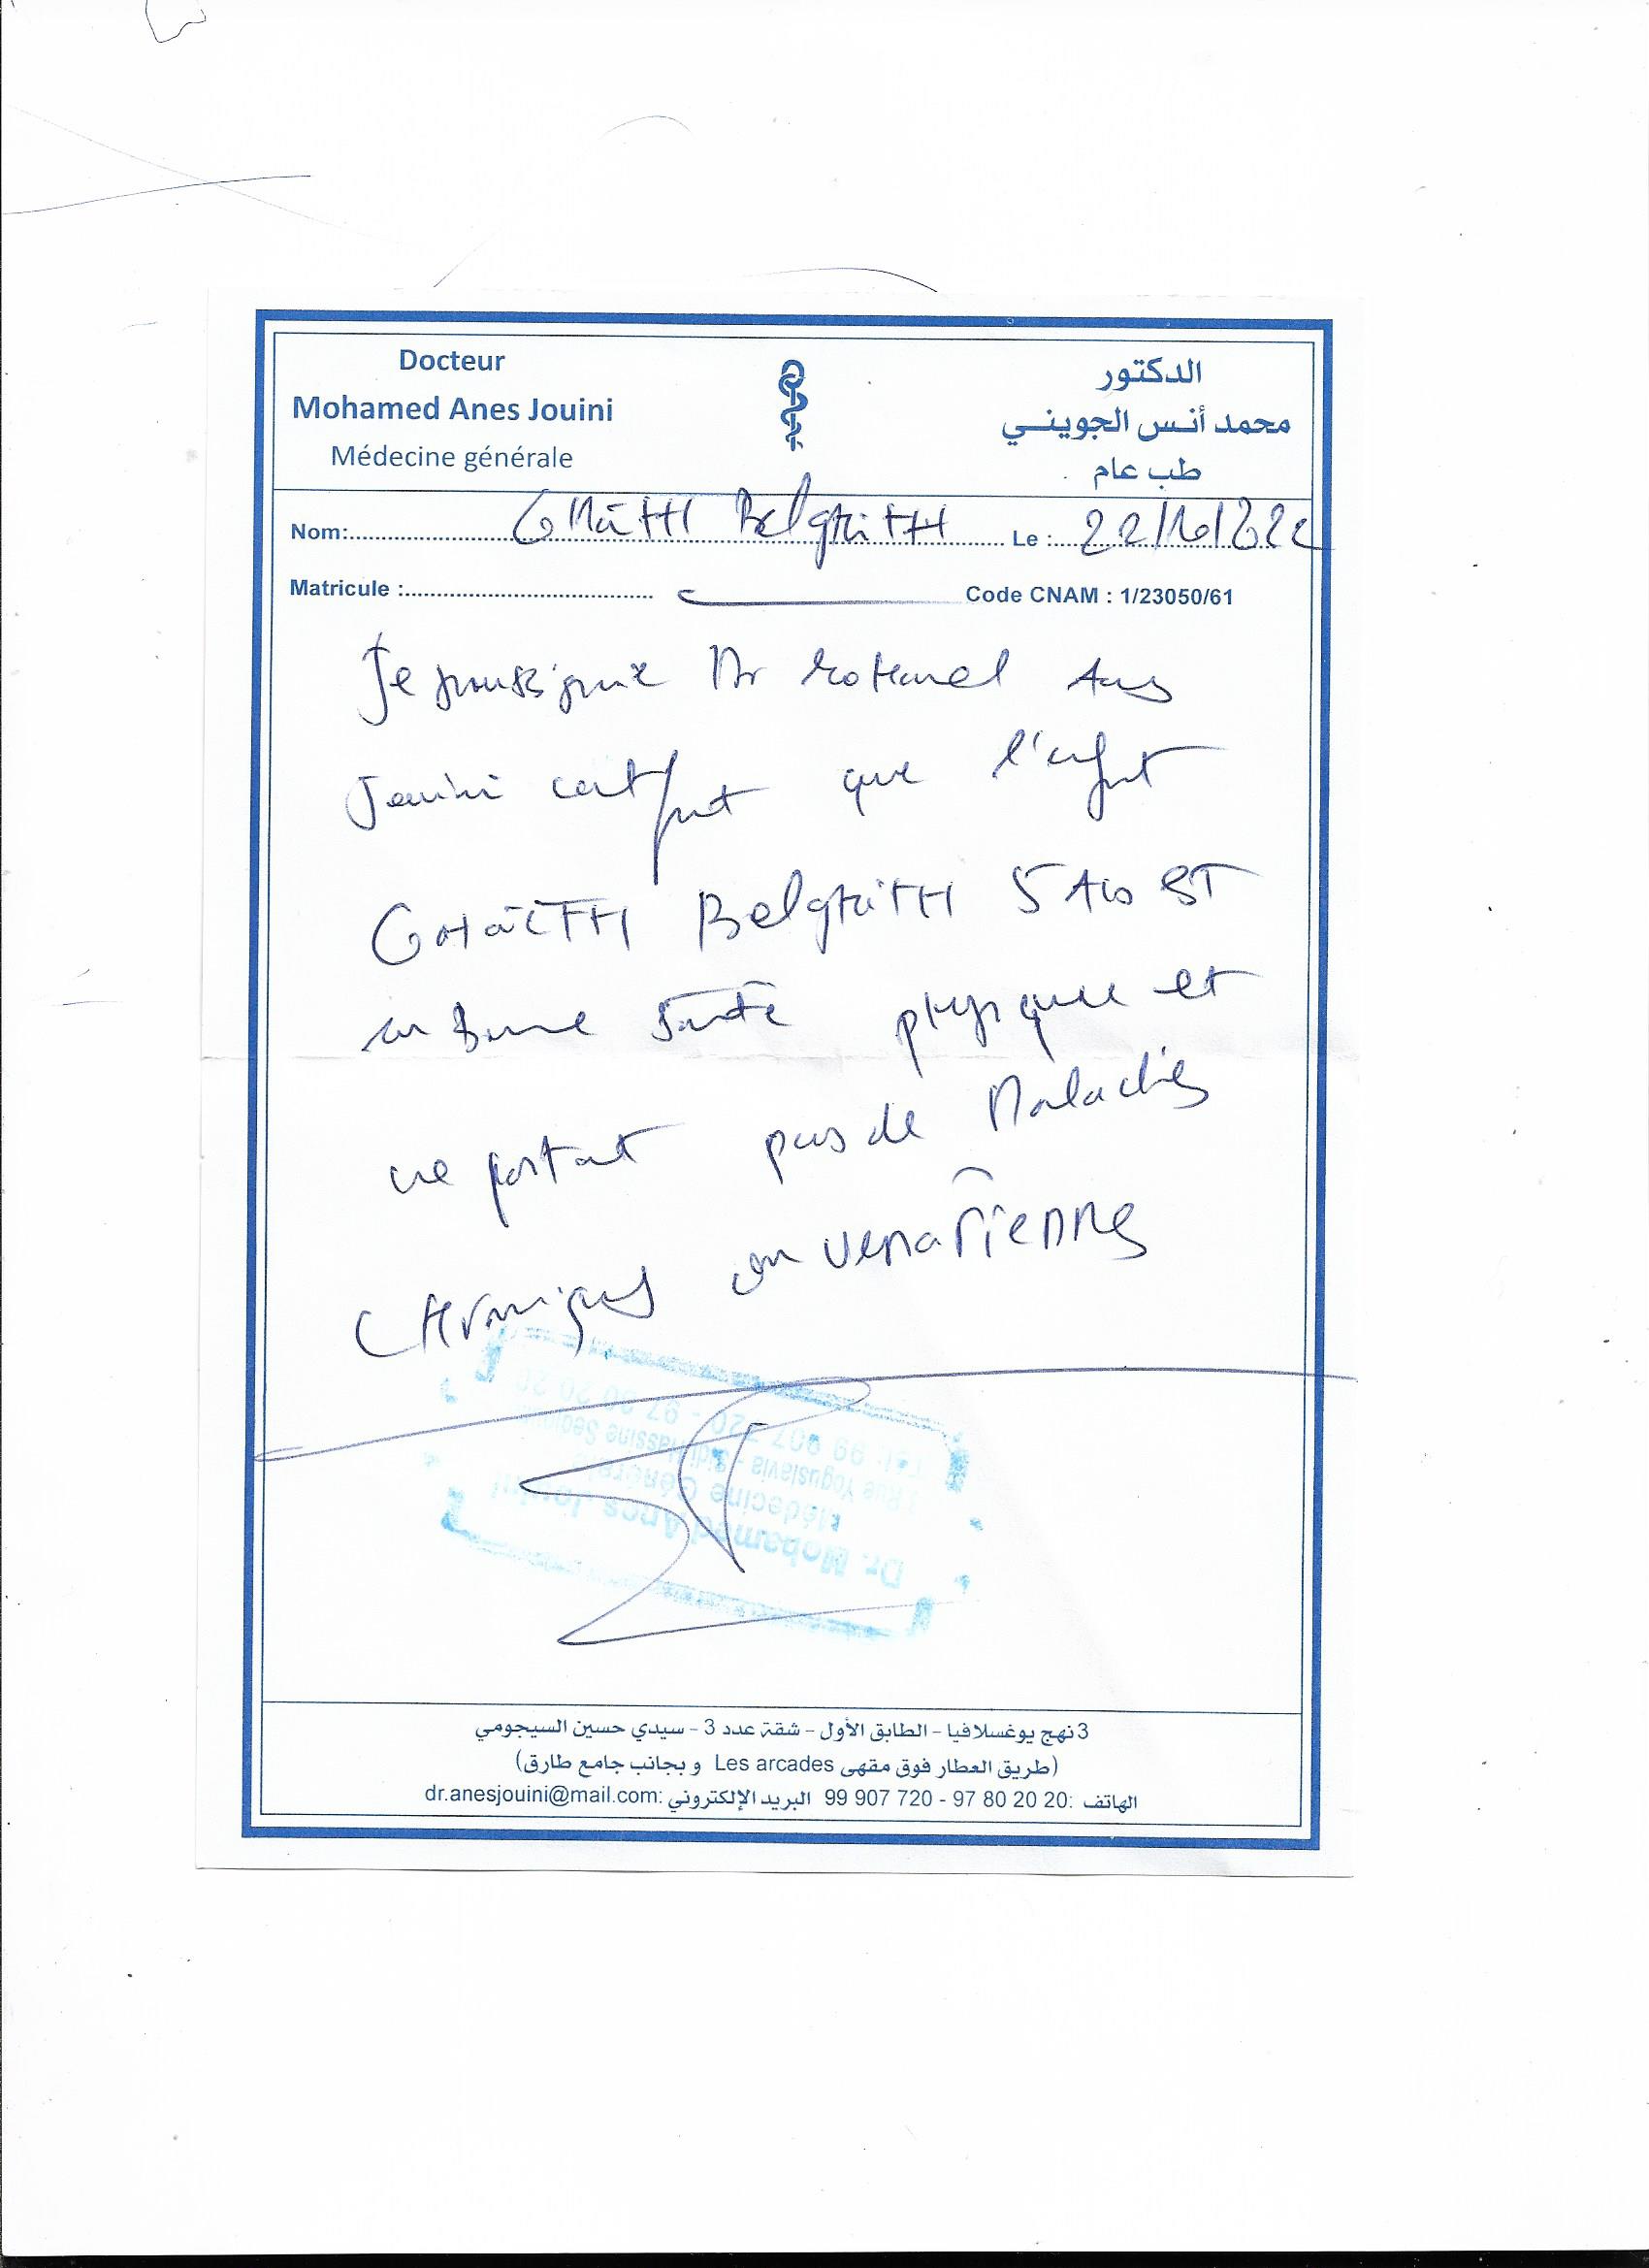 Docteur
Mohamed Anes Jouini
Médecine générale
الدكتور
محمد أنس الجويني
طب عام
Nom: GHAITH BelgHiTH Le : 22/10/222
Matricule : Code CNAM : 1/23050/61
Je soussigné Dr Mohamed Anes
Jouini certifiant que l'enfant
GHaiTH BelgHiTH 5 ANS ST
en bonne santé physique et
ne portant pas de Maladies
CHroniques ou venariennes
Tél: 99 907 720 - 97 80 20 20
3 Rue Yoguslavia - Sidi Hassine Sedjoumi
Médecine Générale
Dr. Mohamed Anes Jouini
3 نهج يوغسلافيا - الطابق الأول - شقة عدد 3 - سيدي حسين السيجومي
(طريق العطار فوق مقهى Les arcades و بجانب جامع طارق)
الهاتف :20 20 80 97 - 720 907 99 البريد الإلكتروني :dr.anesjouini@mail.com